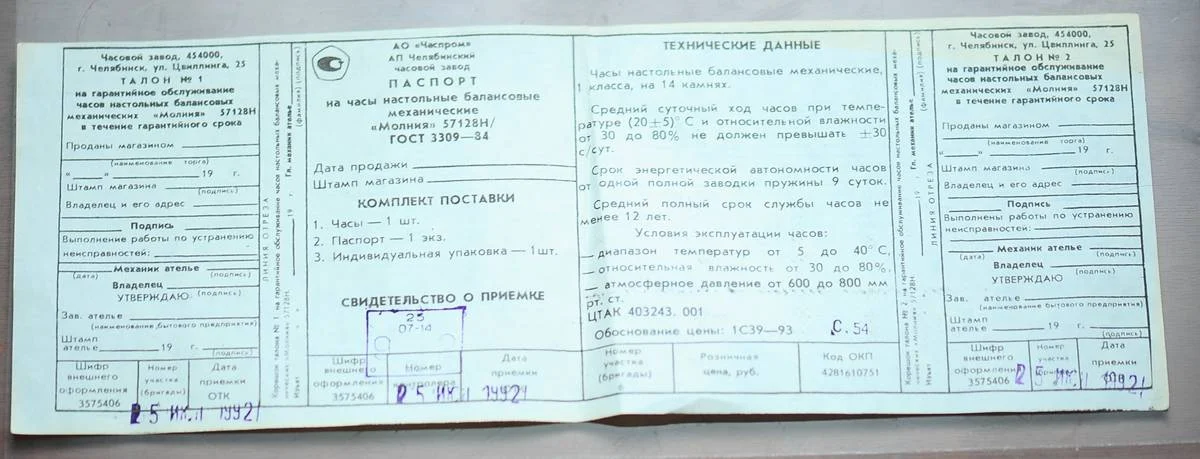 Часовой завод, 454000,
г. Челябинск, ул. Цвиллинга, 25
ТАЛОН № 1
на гарантийное обслуживание
часов настольных балансовых
механических «Молния» 57128Н
в течение гарантийного срока
Проданы магазином
(наименование торга)
«   »   19   г.
Штамп магазина
(подпись)
Владелец и его адрес
Подпись
Выполнение работы по устранению
неисправностей:
Механик ателье
(дата) (подпись)
Владелец
УТВЕРЖДАЮ (подпись)
Зав. ателье
(наименование бытового предприятия)
Штамп
ателье   19   г.
(подпись)
Шифр внешнего оформления 3575406
Номер участка (бригады)
Дата приемки ОТК
25 ИЮЛ 1992
ЛИНИЯ ОТРЕЗА
Корешок талона № 1 на гарантийное обслуживание часов настольных балансовых меха-
нических «Молния» 57128Н.
Изъят   19   г. Гл. механик ателье
(фамилия) (подпись)
АО «Часпром»
АП Челябинский
часовой завод
ПАСПОРТ
на часы настольные балансовые
механические
«Молния» 57128Н/
ГОСТ 3309—84
Дата продажи
Штамп магазина
КОМПЛЕКТ ПОСТАВКИ
1. Часы — 1 шт.
2. Паспорт — 1 экз.
3. Индивидуальная упаковка — 1 шт.
СВИДЕТЕЛЬСТВО О ПРИЕМКЕ
07-14
Шифр внешнего оформления 3575406
Номер контролера
Дата приемки
25 ИЮЛ 1992
ТЕХНИЧЕСКИЕ ДАННЫЕ
Часы настольные балансовые механические,
1 класса, на 14 камнях.
Средний суточный ход часов при темпе-
ратуре (20±5)° С и относительной влажности
от 30 до 80% не должен превышать ±30
с/сут.
Срок энергетической автономности часов
от одной полной заводки пружины 9 суток.
Средний полный срок службы часов не
менее 12 лет.
Условия эксплуатации часов:
— диапазон температур от 5 до 40° С,
— относительная влажность от 30 до 80%,
— атмосферное давление от 600 до 800 мм
рт. ст.
ЦТАК 403243. 001
Обоснование цены: 1С39—93
С. 54
Номер участка (бригады) 6
Розничная цена, руб.
Код ОКП 4281610751
Корешок талона № 2 на гарантийное обслуживание часов настольных балансовых меха-
нических «Молния» 57128Н.
Изъят   19   г. Гл. механик ателье
(фамилия) (подпись)
ЛИНИЯ ОТРЕЗА
Часовой завод, 454000,
г. Челябинск, ул. Цвиллинга, 25
ТАЛОН № 2
на гарантийное обслуживание
часов настольных балансовых
механических «Молния» 57128Н
в течение гарантийного срока
Проданы магазином
(наименование торга)
«   »   19   г.
Штамп магазина
(подпись)
Владелец и его адрес
Подпись
Выполнены работы по устранению
неисправностей:
Механик ателье
(дата) (подпись)
Владелец
(подпись)
УТВЕРЖДАЮ
Зав. ателье
(наименование бытового предприятия)
Штамп
ателье   19   г.
(подпись)
Шифр внешнего оформления 3575406
Номер участка
Дата приемки
25 ИЮЛ 1992